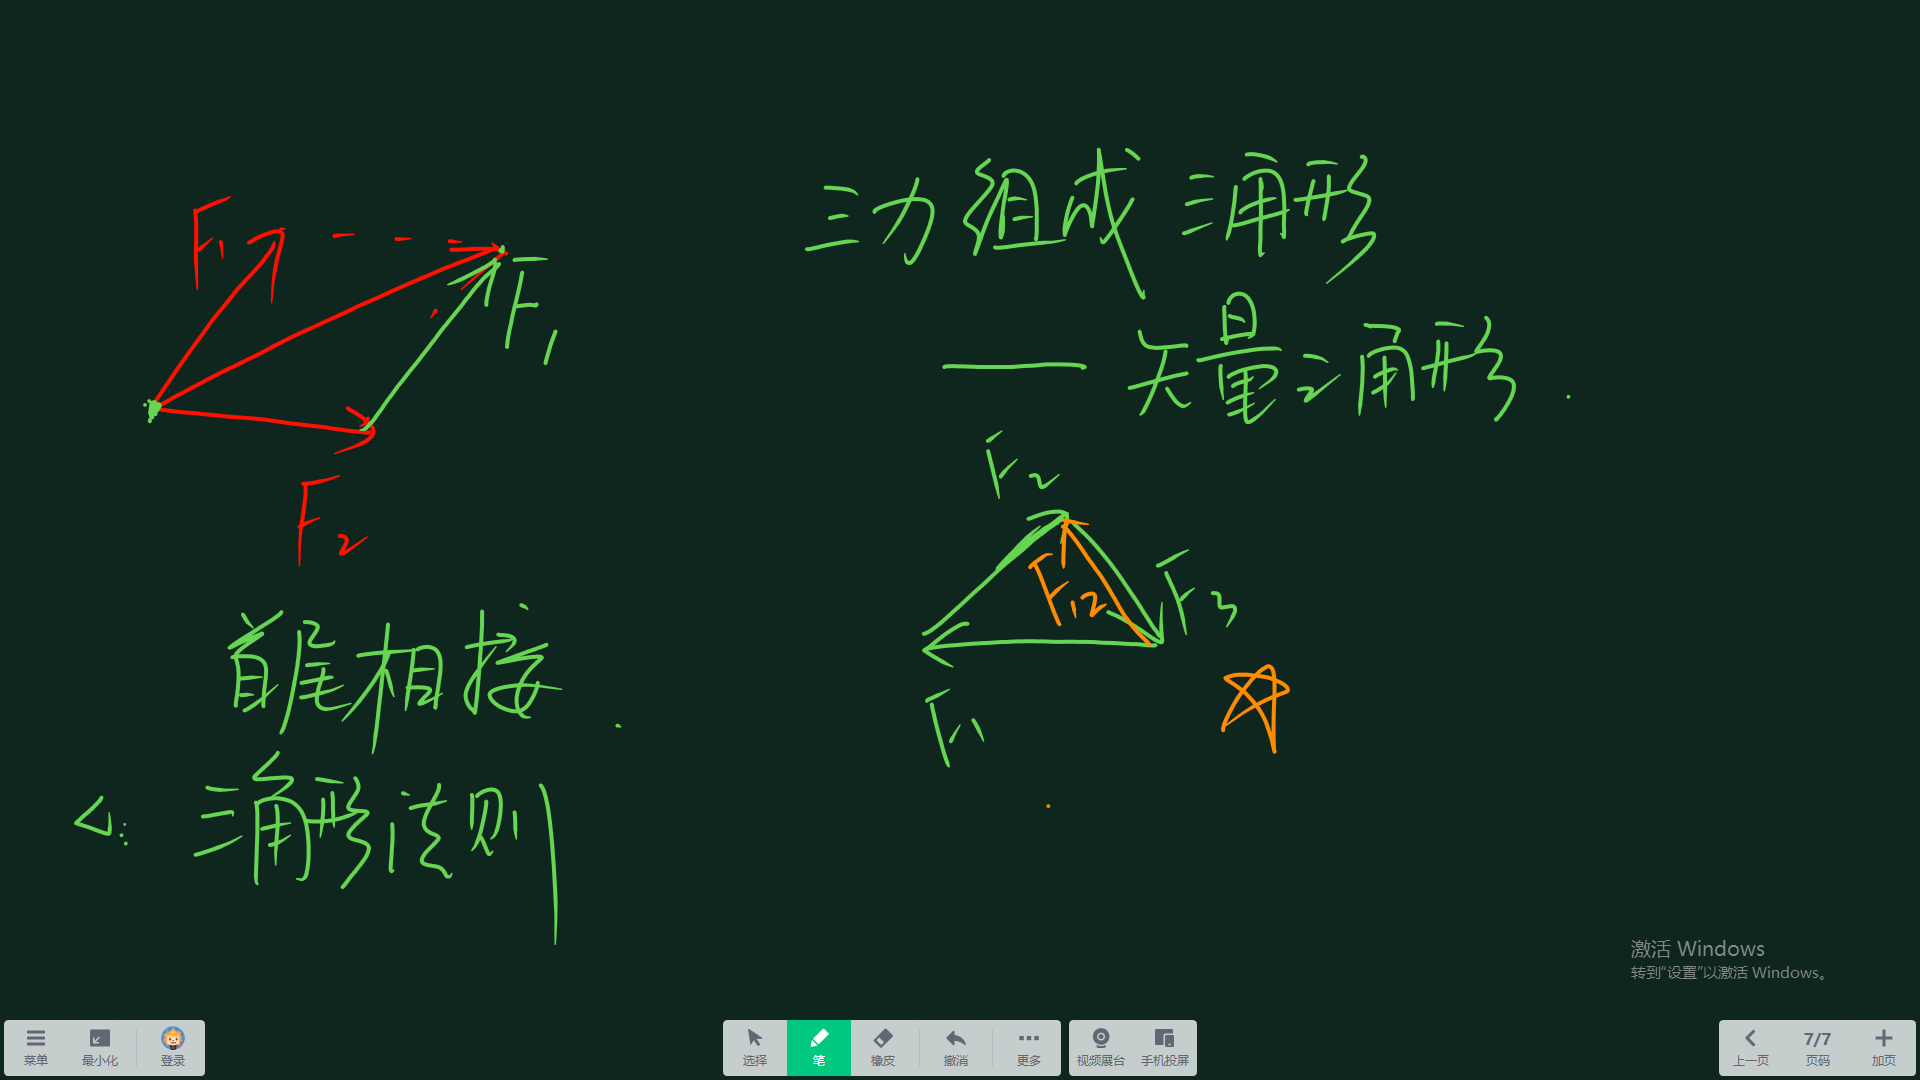 F1
F1
F2
首尾相接.
三角形法则
三力组成三角形
——矢量三角形.
F2
F12
F3
F1
激活 Windows
转到“设置”以激活 Windows。
菜单
最小化
登录
选择
笔
橡皮
撤消
更多
视频展台
手机投屏
上一页
7/7
页码
加页